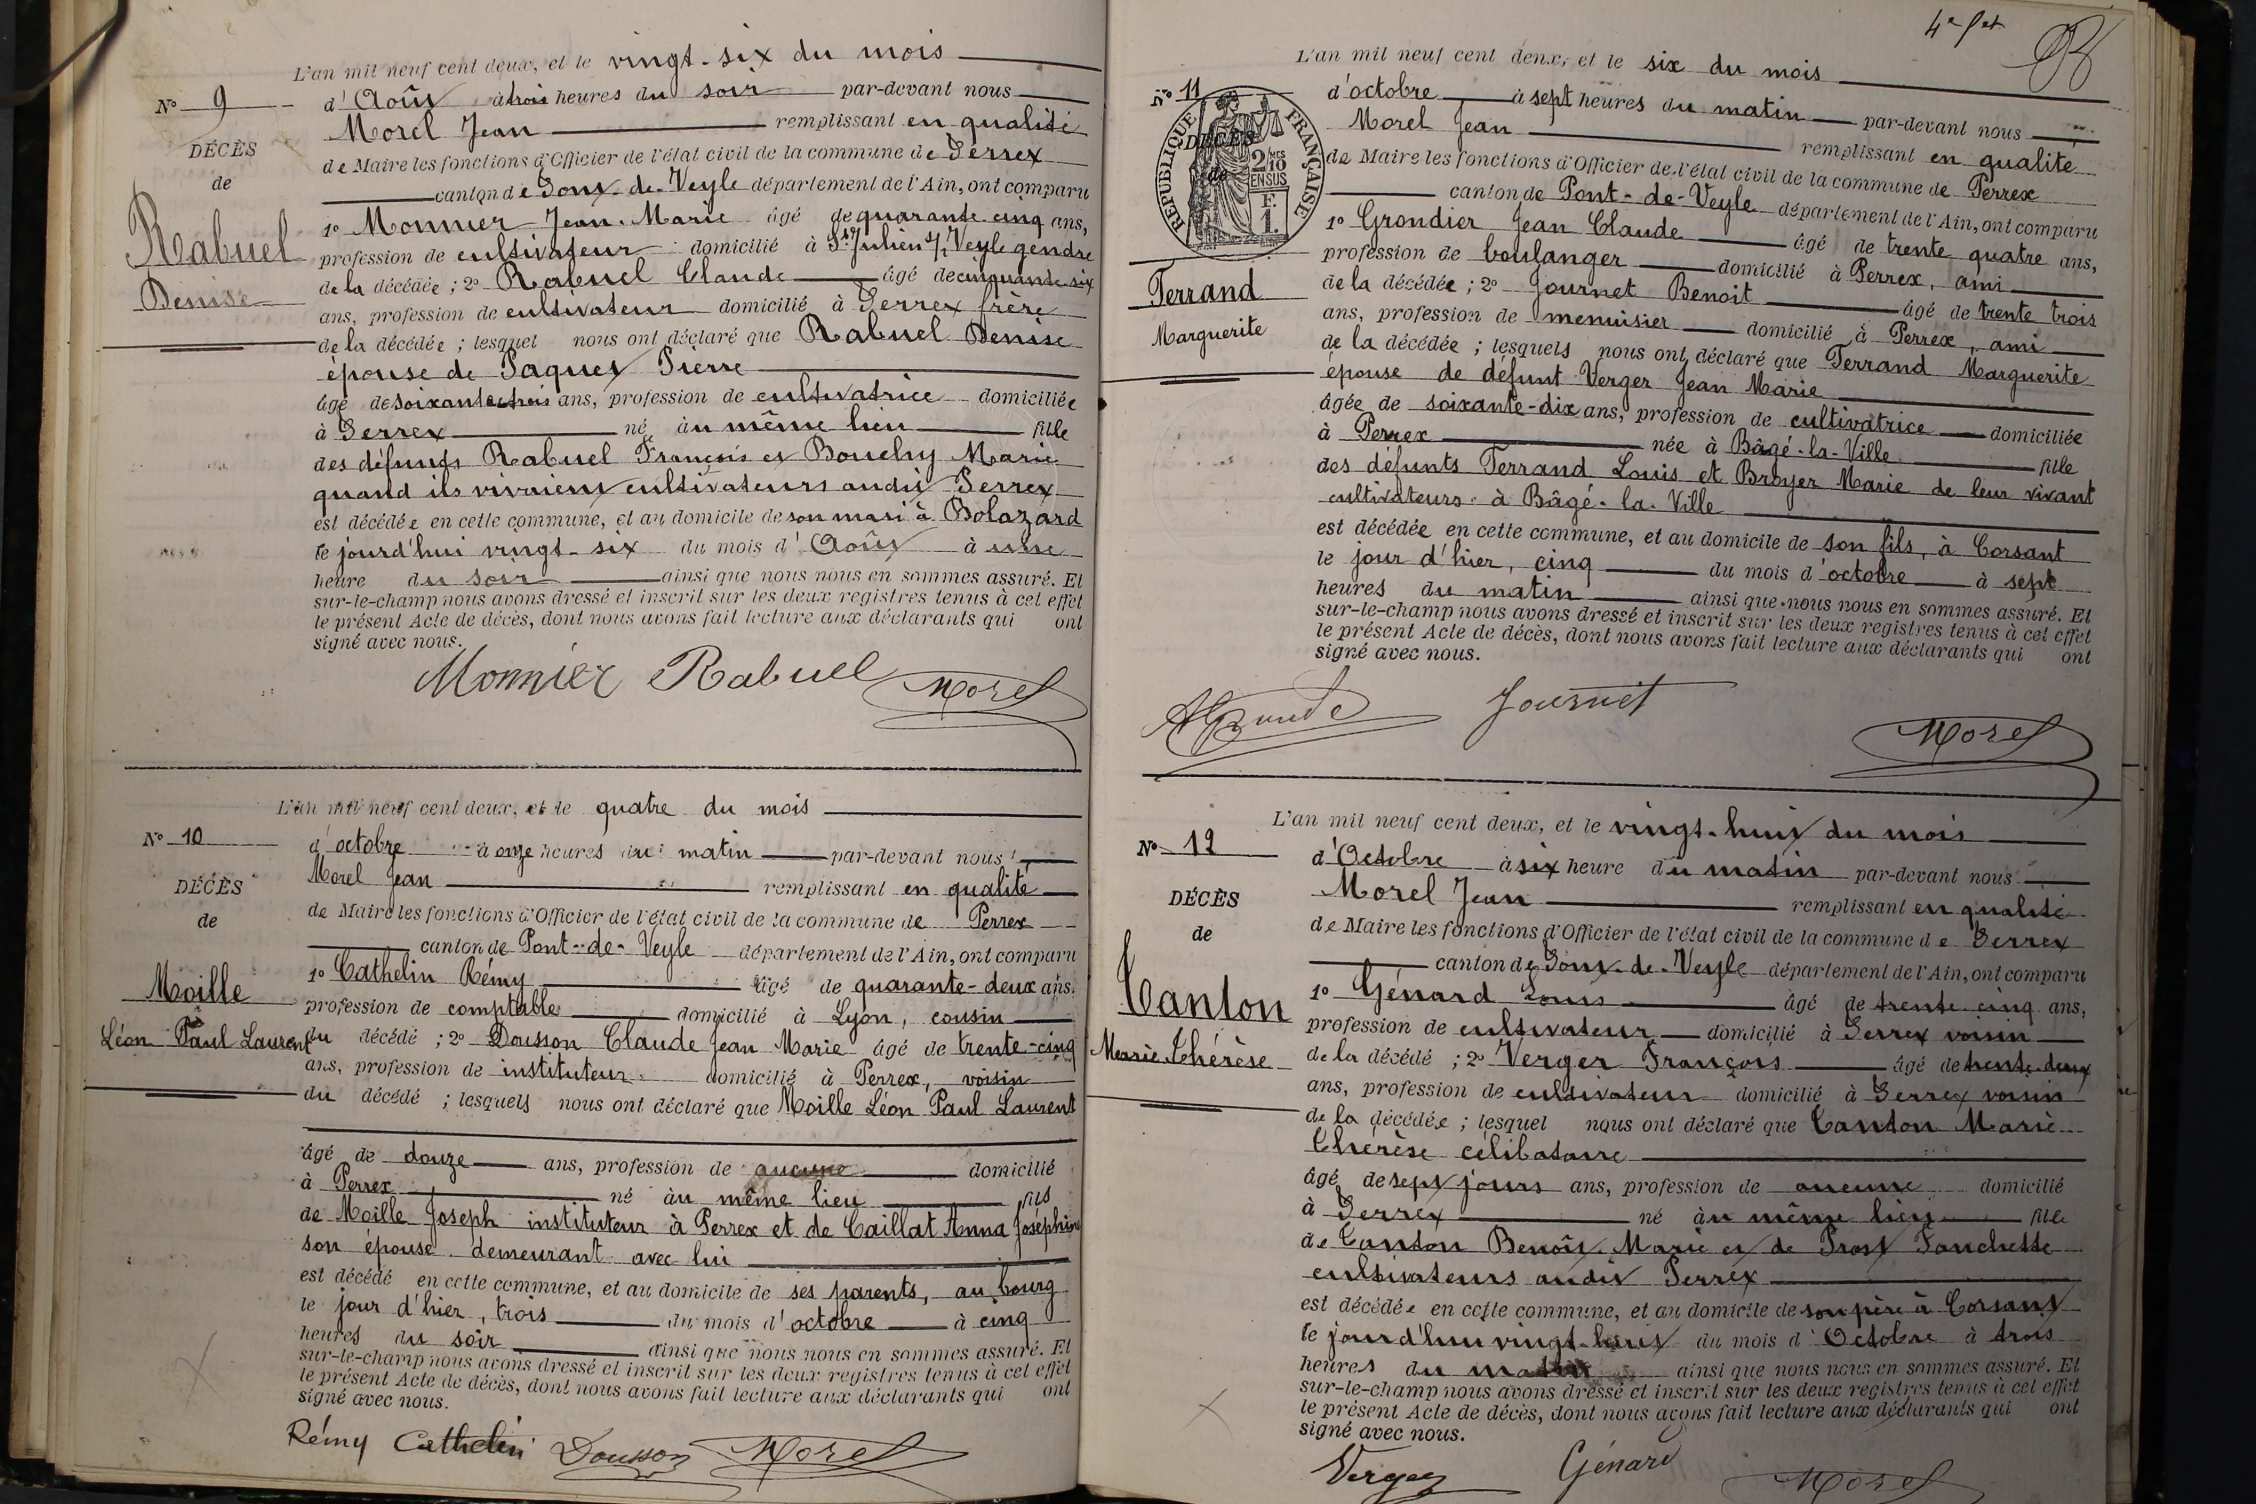 L'an mil neuf cent deux, et le vingt-six du mois
N° 9
d'Août à trois heures du soir par-devant nous
Morel Jean remplissant en qualité
DÉCÈS
de Maire les fonctions d'Officier de l'état civil de la commune de Perrex
de
canton de Pont-de-Veyle département de l'Ain, ont comparu
Rabuel
1° Monnier Jean-Marie âgé de quarante cinq ans,
profession de cultivateur domicilié à St Julien s/ Veyle gendre
Denise
de la décédée ; 2° Rabuel Claude âgé de cinquante six
ans, profession de cultivateur domicilié à Perrex frère
de la décédée ; lesquel nous ont déclaré que Rabuel Denise
épouse de Paquet Pierre
âgé de soixante trois ans, profession de cultivatrice domiciliée
à Perrex née au même lieu fille
des défunts Rabuel François et Bouchy Marie
quand ils vivaient cultivateurs audit Perrex
est décédée en cette commune, et au domicile de son mari à Bolazard
le jourd'hui vingt-six du mois d'Août à une
heure du soir ainsi que nous nous en sommes assuré. Et
sur-le-champ nous avons dressé et inscrit sur les deux registres tenus à cet effet
le présent Acte de décès, dont nous avons fait lecture aux déclarants qui ont
signé avec nous.
Monnier Rabuel Morel
L'an mil neuf cent deux, et le quatre du mois
N° 10
d'octobre à onze heures du matin par-devant nous
Morel Jean remplissant en qualité
DÉCÈS
de Maire les fonctions d'Officier de l'état civil de la commune de Perrex
de
canton de Pont-de-Veyle département de l'Ain, ont comparu
Moille
1° Cathelin Rémy âgé de quarante-deux ans,
profession de comptable domicilié à Lyon, cousin
Léon Paul Laurent
du décédé ; 2° Dousson Claude Jean Marie âgé de trente-cinq
ans, profession de instituteur domicilié à Perrex, voisin
du décédé ; lesquels nous ont déclaré que Moille Léon Paul Laurent
âgé de douze ans, profession de aucune domicilié
à Perrex né au même lieu fils
de Moille Joseph instituteur à Perrex et de Caillat Anna Joséphine
son épouse demeurant avec lui
est décédé en cette commune, et au domicile de ses parents, au bourg
le jour d'hier, trois du mois d'octobre à cinq
heures du soir ainsi que nous nous en sommes assuré. Et
sur-le-champ nous avons dressé et inscrit sur les deux registres tenus à cet effet
le présent Acte de décès, dont nous avons fait lecture aux déclarants qui ont
signé avec nous.
Rémy Cathelin Dousson Morel
4e fet
L'an mil neuf cent deux, et le six du mois
N° 11
d'octobre à sept heures du matin par-devant nous
Morel Jean remplissant en qualité
DÉCÈS
de
RÉPUBLIQUE FRANÇAISE
2/10 EN SUS
F. 1.
de Maire les fonctions d'Officier de l'état civil de la commune de Perrex
canton de Pont-de-Veyle département de l'Ain, ont comparu
1° Grondier Jean Claude âgé de trente quatre ans,
profession de boulanger domicilié à Perrex, ami
Ferrand
de la décédée ; 2° Journet Benoit âgé de trente trois
ans, profession de menuisier domicilié à Perrex, ami
Marguerite
de la décédée ; lesquels nous ont déclaré que Ferrand Marguerite
épouse de défunt Verger Jean Marie
âgée de soixante-dix ans, profession de cultivatrice domiciliée
à Perrex née à Bâgé-la-Ville fille
des défunts Ferrand Louis et Broyer Marie de leur vivant
cultivateurs à Bâgé-la-Ville
est décédée en cette commune, et au domicile de son fils, à Corsant
le jour d'hier, cinq du mois d'octobre à sept
heures du matin ainsi que nous nous en sommes assuré. Et
sur-le-champ nous avons dressé et inscrit sur les deux registres tenus à cet effet
le présent Acte de décès, dont nous avons fait lecture aux déclarants qui ont
signé avec nous.
Journet Morel
L'an mil neuf cent deux, et le vingt-huit du mois
N° 12
d'Octobre à six heure du matin par-devant nous
Morel Jean remplissant en qualité
DÉCÈS
de Maire les fonctions d'Officier de l'état civil de la commune de Perrex
de
canton de Pont-de-Veyle département de l'Ain, ont comparu
Canton
1° Génard Louis âgé de trente cinq ans,
profession de cultivateur domicilié à Perrex voisin
Marie Thérèse
de la décédé ; 2° Verger François âgé de trente-deux
ans, profession de cultivateur domicilié à Perrex voisin
de la décédée ; lesquel nous ont déclaré que Canton Marie
Thérèse célibataire
âgé de sept jours ans, profession de aucune domicilié
à Perrex né au même lieu fille
de Canton Benoît-Marie et de Prost Fanchette
cultivateurs audit Perrex
est décédée en cette commune, et au domicile de son père à Corsant
le jourd'hui vingt-huit du mois d'Octobre à trois
heures du matin ainsi que nous nous en sommes assuré. Et
sur-le-champ nous avons dressé et inscrit sur les deux registres tenus à cet effet
le présent Acte de décès, dont nous avons fait lecture aux déclarants qui ont
signé avec nous.
Verger Génard Morel